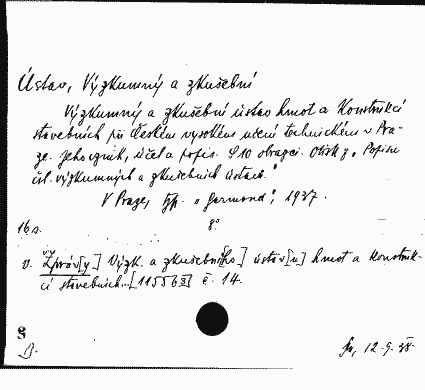 Ústav, Výzkumný a zkušební
Výzkumný a zkušební ústav hmot a konstrukcí
stavebních při Českém vysokém učení technickém v Pra-
ze. Jeho vznik, účel a popis. S 10 obrazci. Otisk z „Popisu
čsl. výzkumných a zkušebních ústavů."
V Praze, typ. „Germond", 1937.
16 s. 8°
v. Zpráv[y] Výzk. a zkušební[ho] ústav[u] hmot a konstruk-
cí stavebních..[115563] č. 14.
12.9.38